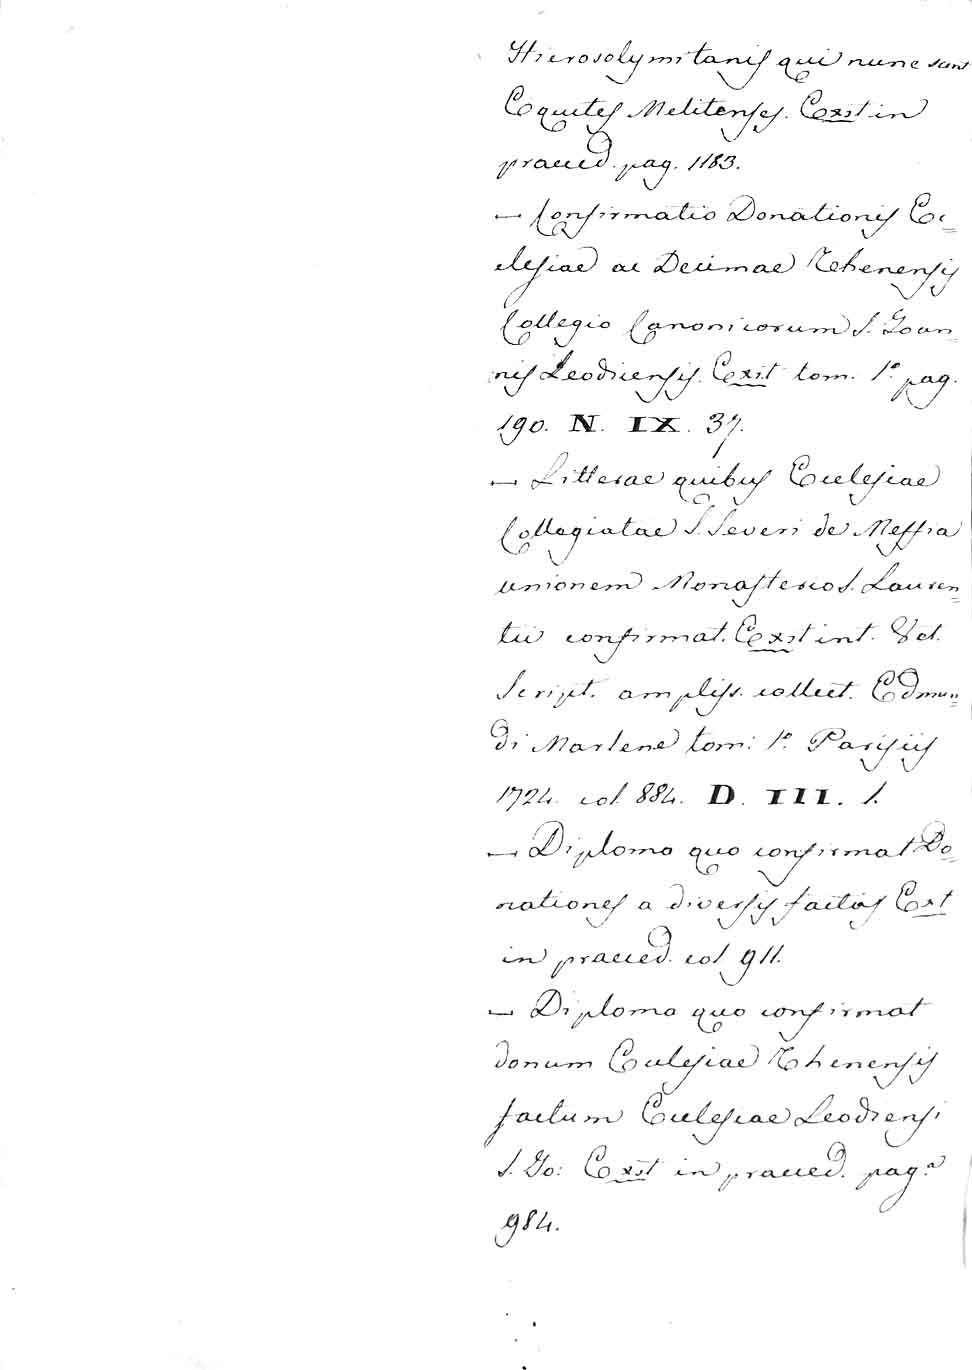 Hierosolymitanis qui nunc sunt
Equites Melitenses. Exst in
praeced. pag. 1183.
— Confirmatio Donationis Ec=
clesiae ac Decimae Thenensis
Collegio Canonicorum S. Joan=
nis Leodicensis. Exst tom. 1.° pag.
190. N. IX. 37.
— Litterae quibus Ecclesiae
Collegiatae S. Severi de Meffia
unionem Monasterio S. Lauren=
tii confirmat. Exst int. Vet.
Script. ampliss. collect. Edmun=
di Martene tom: 1.° Parisiis
1724. col. 884. D. III. 1.
— Diploma quo confirmat Do=
nationes a diversis factas Ext
in praeced. col 911.
— Diploma quo confirmat
donum Ecclesiae Thenensis
factum Ecclesiae Leodiensi
S. Jo: Exst in praeced. pag.ª
984.